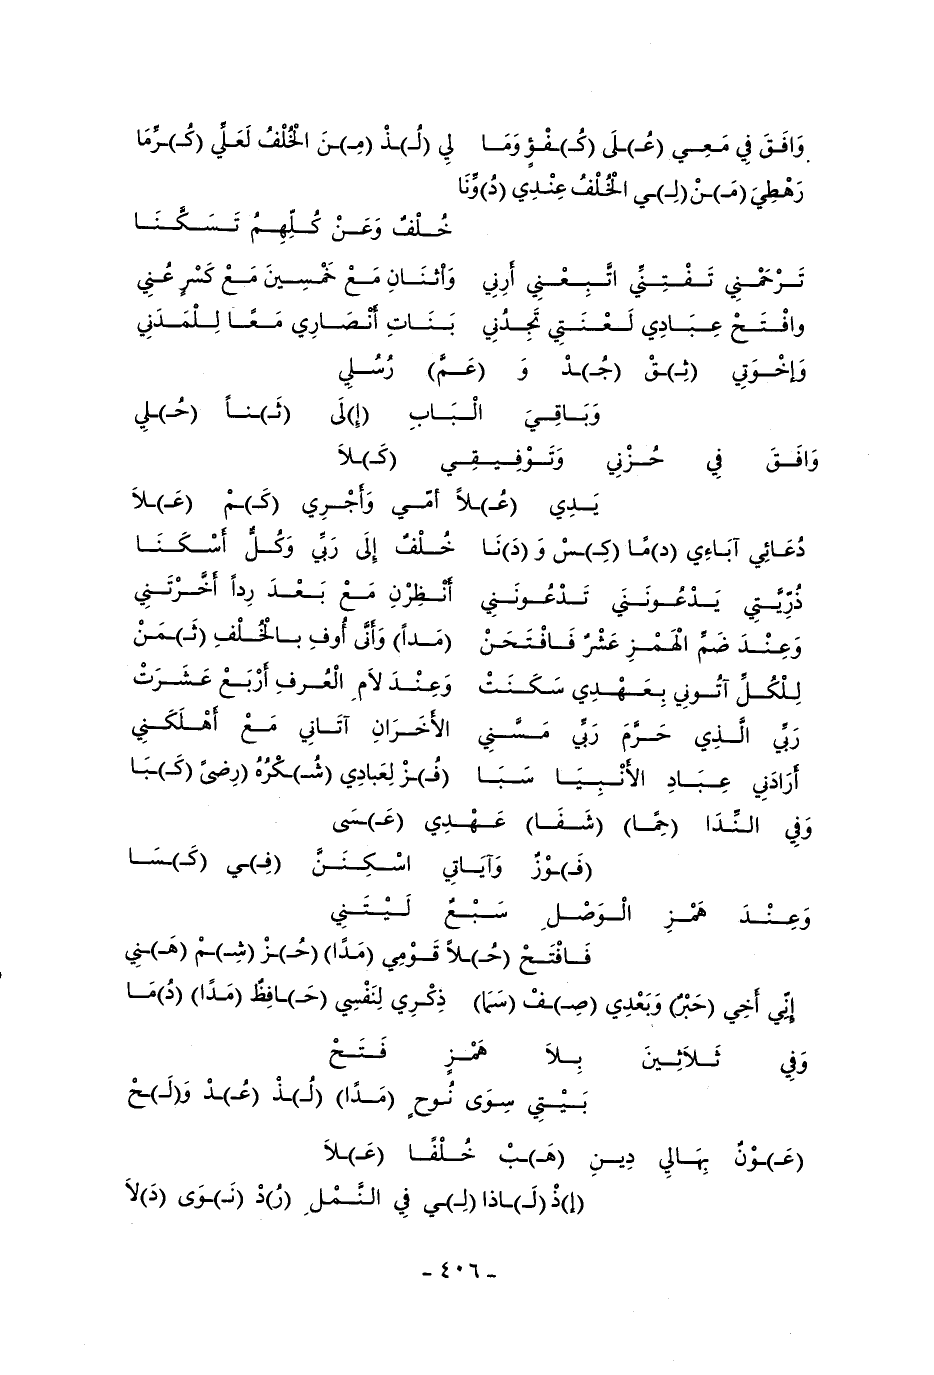 وَافَقَ فِي مَعِي (عُـ)ـلَ (كُـ)ـفْؤٍ وَمَا لِي (لُـ)ـذْ (مِـ)ـنَ الخُلْفُ لَعَلِّ (كُـ)ـرِّمَا
رَهْطِيَ (مَـ)ـنْ (لِـ)ـي الخُلْفُ عِنْدِي (دُ)وِّنَا
خُلْفٌ وَعَنْ كُلِّهِمُ تَسَكَّنَا
تَرْحَمْنِي تَفْتِنِّي اتَّبِعْنِي أَرِنِي وَاثْنَانِ مَعْ خَمْسِينَ مَعْ كَسْرٍ عُنِي
وَافْتَحْ عِبَادِي لَعْنَتِي تَجِدُنِي بَنَاتِ أَنْصَارِي مَعًا لِلْمَدَنِي
وَإِخْوَتِي (ثِـ)ـقْ (جُـ)ـدْ وَ (عَمَّ) رُسُلِي
وَبَاقِيَ الْبَابِ (إِ)لَى (ثَـ)ـنَا (حُـ)ـلِي
وَافَقَ فِي حُزْنِي وَتَوْفِيقِي (كَـ)ـلاَ
يَدِي (عُـ)ـلاَ أُمِّي وَأَجْرِي (كَـ)ـمْ (عَـ)ـلاَ
دُعَائِي آبَاءِي (دُ)مًا (كِـ)ـسْ وَ (دَ)نَا خُلْفٌ إِلَى رَبِّي وَكُلٌّ أَسْكَنَا
ذُرِّيَّتِي يَدْعُونَنِي تَدْعُونَنِي أَنْظِرْنِ مَعْ بَعْدَ رِدًا أَخَّرْتَنِي
وَعِنْدَ ضَمِّ الْهَمْزِ عَشْرٌ فَافْتَحَنْ (مَدًا) وَأَنِّي أُوفِ بِالْخُلْفِ (ثَـ)ـمَنْ
لِلْكُلِّ آتُونِي بِعَهْدِي سَكَنَتْ وَعِنْدَ لاَمِ الْعُرْفِ أَرْبَعْ عَشَرَتْ
رَبِّي الَّذِي حَرَّمَ رَبِّي مَسَّنِي الآخَرَانِ آتَانِ مَعْ أَهْلَكَنِي
أَرَادَنِي عِبَادِ الأَنْبِيَا سَبَا (فُـ)ـزْ لِعِبَادِي (شُـ)ـكْرُهُ (رِضًى) (كَـ)ـبَا
وَفِي النِّدَا (حِمًا) (شَفَا) عَهْدِي (عَـ)ـسَى
(فَـ)ـوْزٌ وَآيَاتِي اسْكِنَنَّ (فِـ)ـي (كَـ)ـسَا
وَعِنْدَ هَمْزِ الْوَصْلِ سَبْعٌ لَيْتَنِي
فَافْتَحْ (حُـ)ـلاَ قَوْمِي (مَدًا) (حُـ)ـزْ (شِـ)ـمْ (هَـ)ـنِي
إِنِّي أَخِي (حَبْرٌ) وَبَعْدِي (صِـ)ـفْ (سَمَا) ذِكْرِي لِنَفْسِي (حَـ)ـافِظٌ (مَدًا) (دُ)مَا
وَفِي ثَلاَثِينَ بِلاَ هَمْزٍ فَتَحْ
بَيْتِي سِوَى نُوحٍ (مَدًا) (لُـ)ـذْ (عُـ)ـدْ وَ(لَـ)ـحْ
(عَـ)ـوْنٌ بِهَا لِي دِينِ (هَـ)ـبْ خُلْفًا (عَـ)ـلاَ
(إِ)ذْ (لَـ)ـاذَا (لِـ)ـي فِي النَّمْلِ (رُ)دْ (نَـ)ـوَى (دَ)لاَ
ـ ٤٠٦ ـ